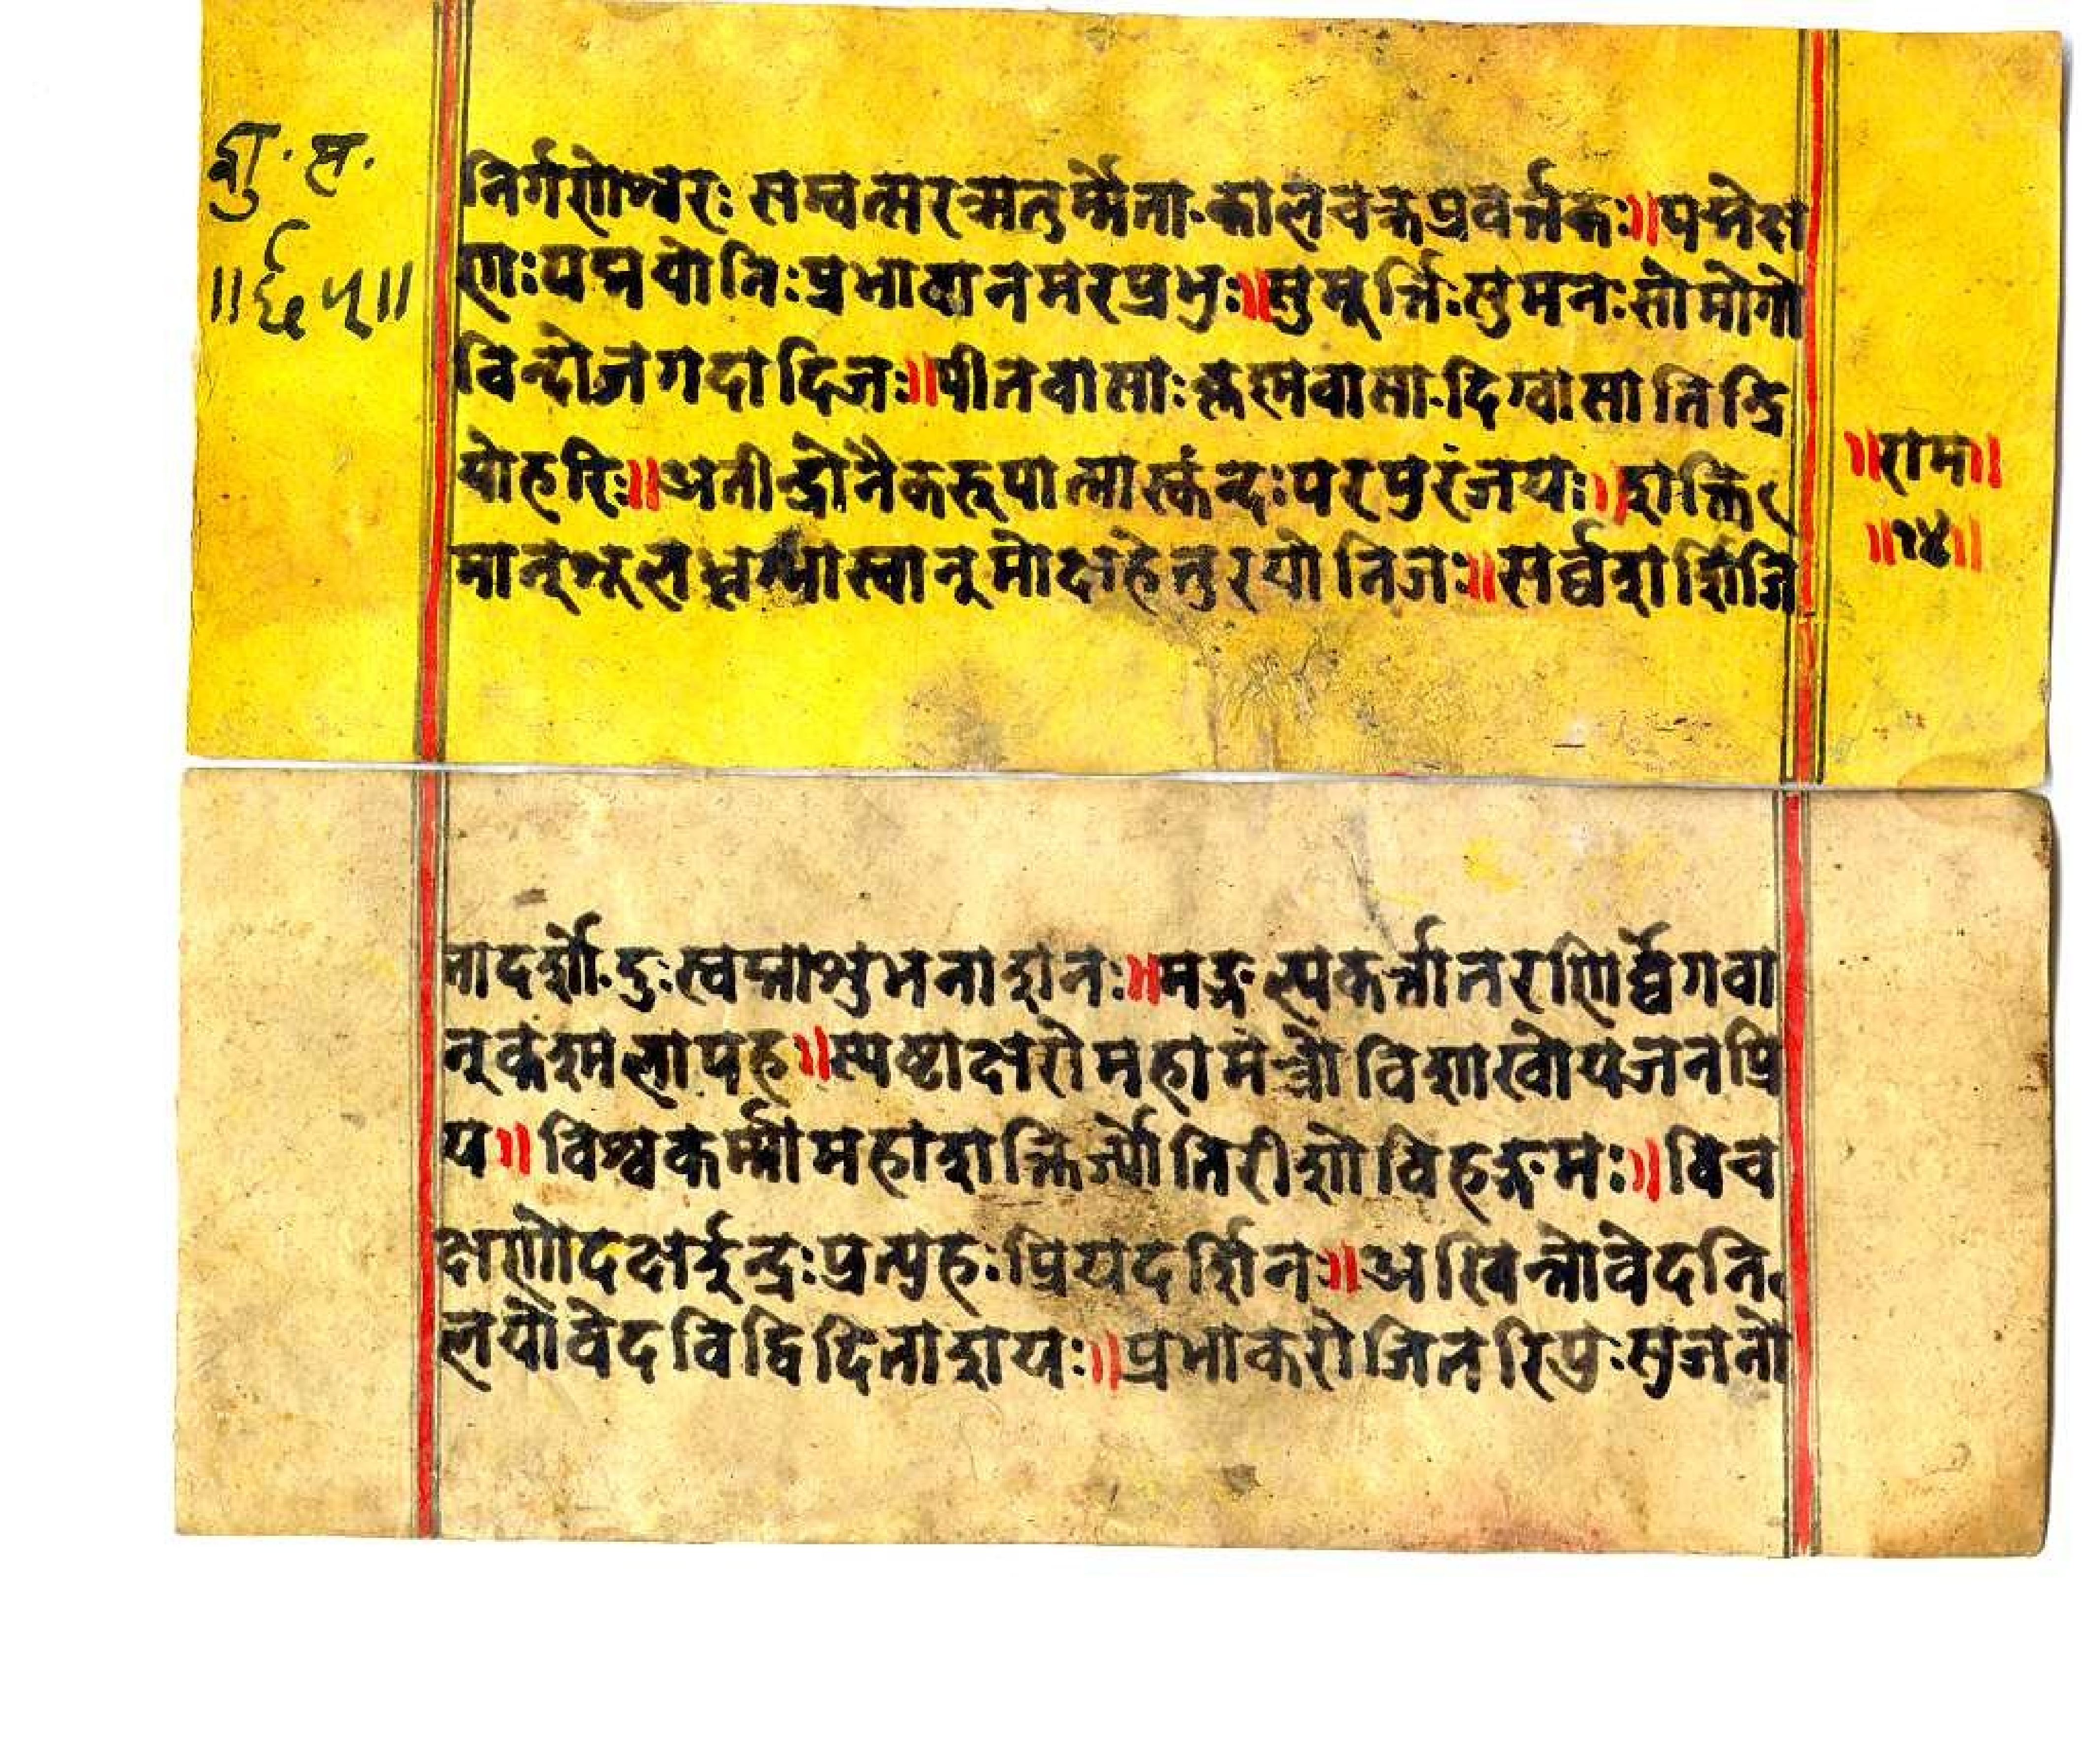 सु. स.
॥ई५॥
निर्गणेश्वरः सम्वत्सरऋतुर्म्मेता-कालचक्रप्रवर्त्तकः॥पद्मेक्ष
णःपद्मयोनिःप्रभावानमरप्रभुः॥सुमूर्त्तिःसुमनःसोमोगो
विन्दोजगदादिजः॥पीतवासाःकृष्णवासा-दिग्वासातिन्द्रि
योहरिः॥अतीन्द्रोनैकरूपात्मास्कंन्दःपरपुरंजयः॥शक्ति
मान्शूलधृग्भास्वान्मोक्षहेतुरयोनिजः॥सर्व्वदर्शिजि
॥राम॥
॥१४॥
तादर्शो-दुःस्वप्नाशुभनाशनः॥मङ्गल्यकर्त्तातरणिर्व्वेगवा
न्कश्मलापह॥स्पष्टाक्षरोमहामंत्रोविशाखोयजनप्रि
य॥विश्वकर्म्मामहाशक्तिर्ज्योतिरीशोविहङ्गमः॥विच
क्षणोदक्षईन्द्रःप्रत्युहःप्रियदर्शिनः॥अखिन्नोवेदनि
लयोवेदविद्विदिताशयः॥प्रभाकरोजितरिपुःसुजनो